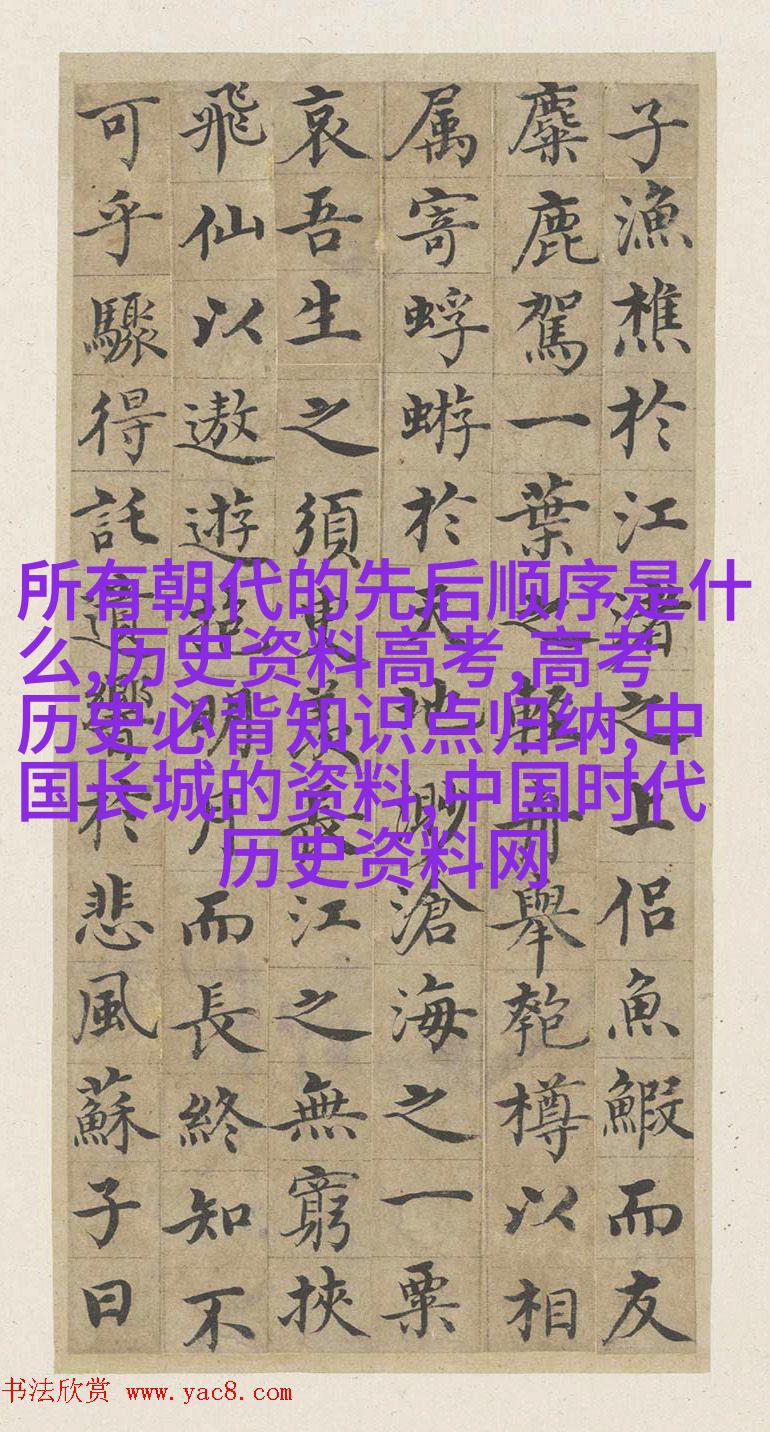 子漁樵於江渚之上侶魚鰕而友
麋鹿駕一葉之輕舟舉匏樽以相
属寄蜉蝣於天地渺滄海之一粟
哀吾生之須臾羨長江之無窮挾
飛仙以遨遊抱明月而長終知不
可乎驟得託遺響於悲風蘇子曰
所有朝代的先后顺序是什
么,历史资料高考,高考
历史必背知识点归纳,中
国长城的资料,中国时代
历史资料网
书法欣赏 www.yac8.com